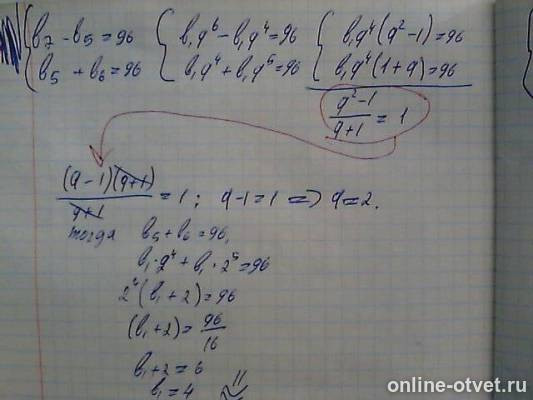 {b₇ - b₅ = 96 {b₁q⁶ - b₁q⁴ = 96 {b₁q⁴(q² - 1) = 96
b₅ + b₆ = 96 b₁q⁴ + b₁q⁵ = 96 b₁q⁴(1 + q) = 96
(q² - 1)/(q + 1) = 1
(q - 1)(q + 1)/(q + 1) = 1; q - 1 = 1 => q = 2.
тогда b₅ + b₆ = 96,
b₁·2⁴ + b₁·2⁵ = 96
2⁴(b₁ + 2) = 96
(b₁ + 2) = 96/16
b₁ + 2 = 6
b₁ = 4
online-otvet.ru